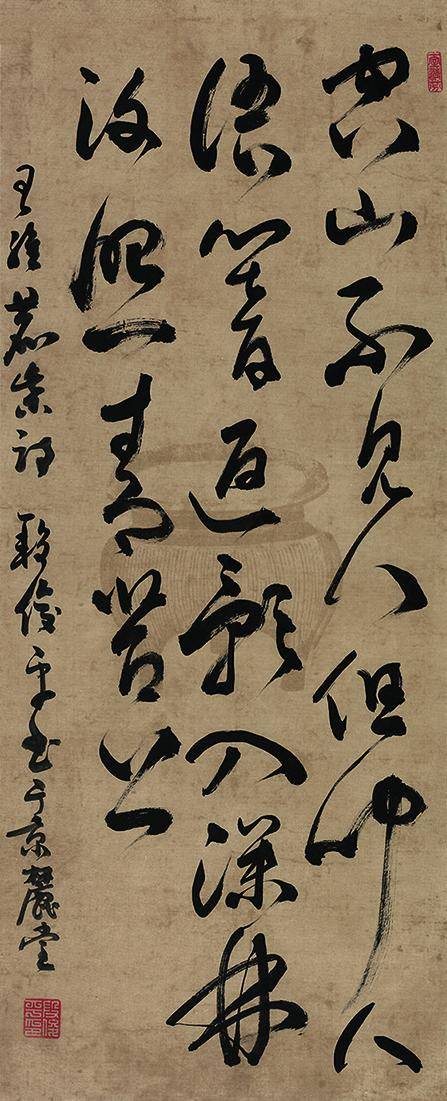 空山不見人但聞人
語響返影入深林
復照青苔上
王維鹿柴詩 段俊平書于京麓堂